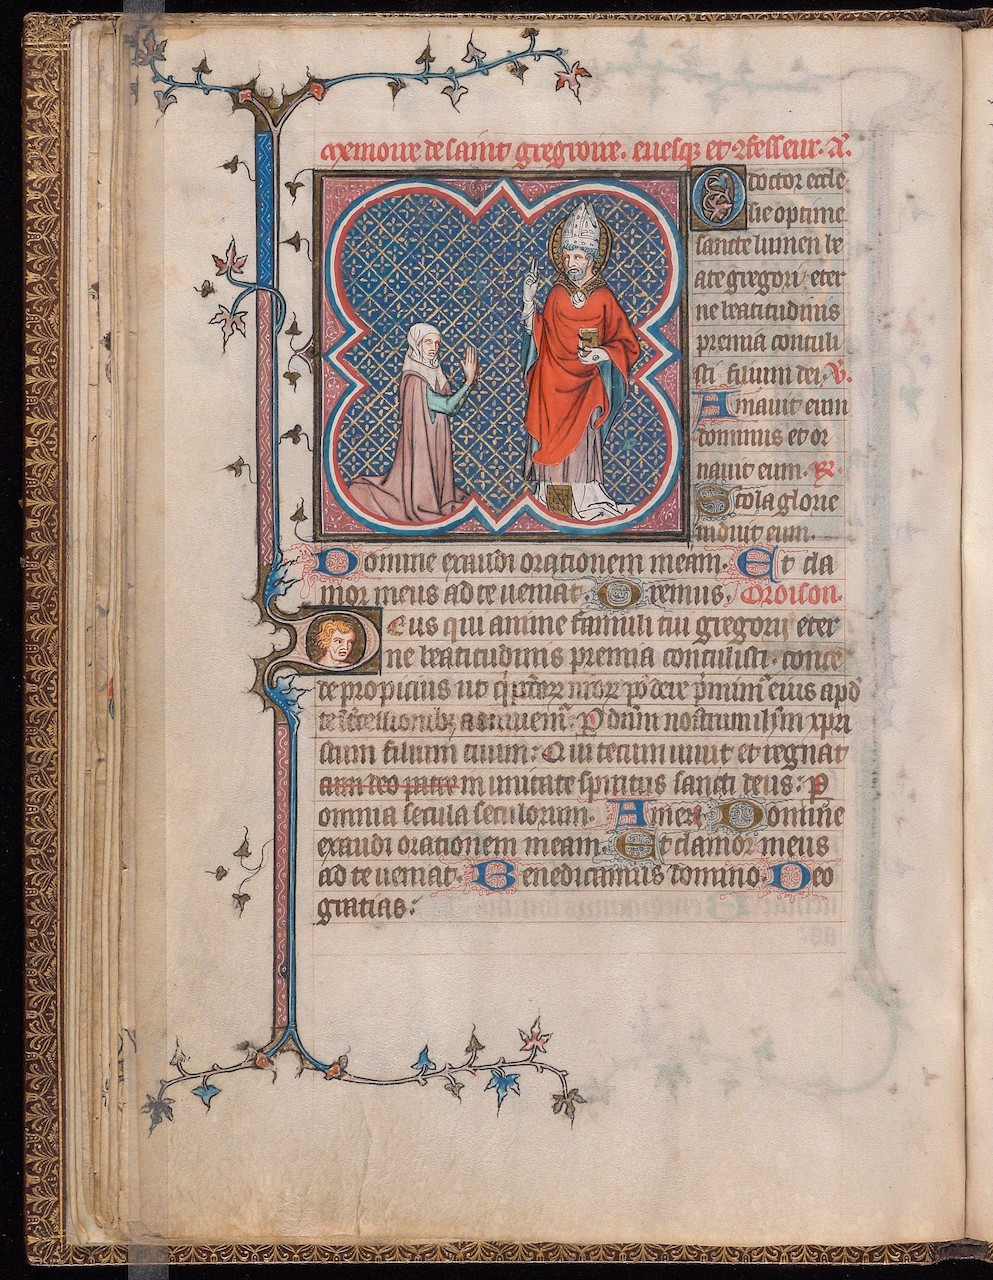 Memoire de saint gregoire. euesq et ꝯfesseur. A.
O doctor eccle
sie optime
sancte lumen be
ate gregori eter
ne beatitudinis
premia contuli
sti filium dei. V.
Amauit eum
dominus et or
nauit eum. R.
Stola glorie
induit eum.
Domine exaudi orationem meam. Et cla
mor meus ad te ueniat. Oremus. Oroison.
Deus qui anime famuli tui gregorij eter
ne beatitudinis premia contulisti. conce
de propicius ut
P dnm nostrum ihm xpi
stum filium tuum. Qui tecum uiuit et regnat
cum deo patre in unitate spiritus sancti deus. P
omnia secula seculorum. Amen. Domine
exaudi orationem meam. Et clamor meus
ad te ueniat. Benedicamus domino. Deo
gratias.